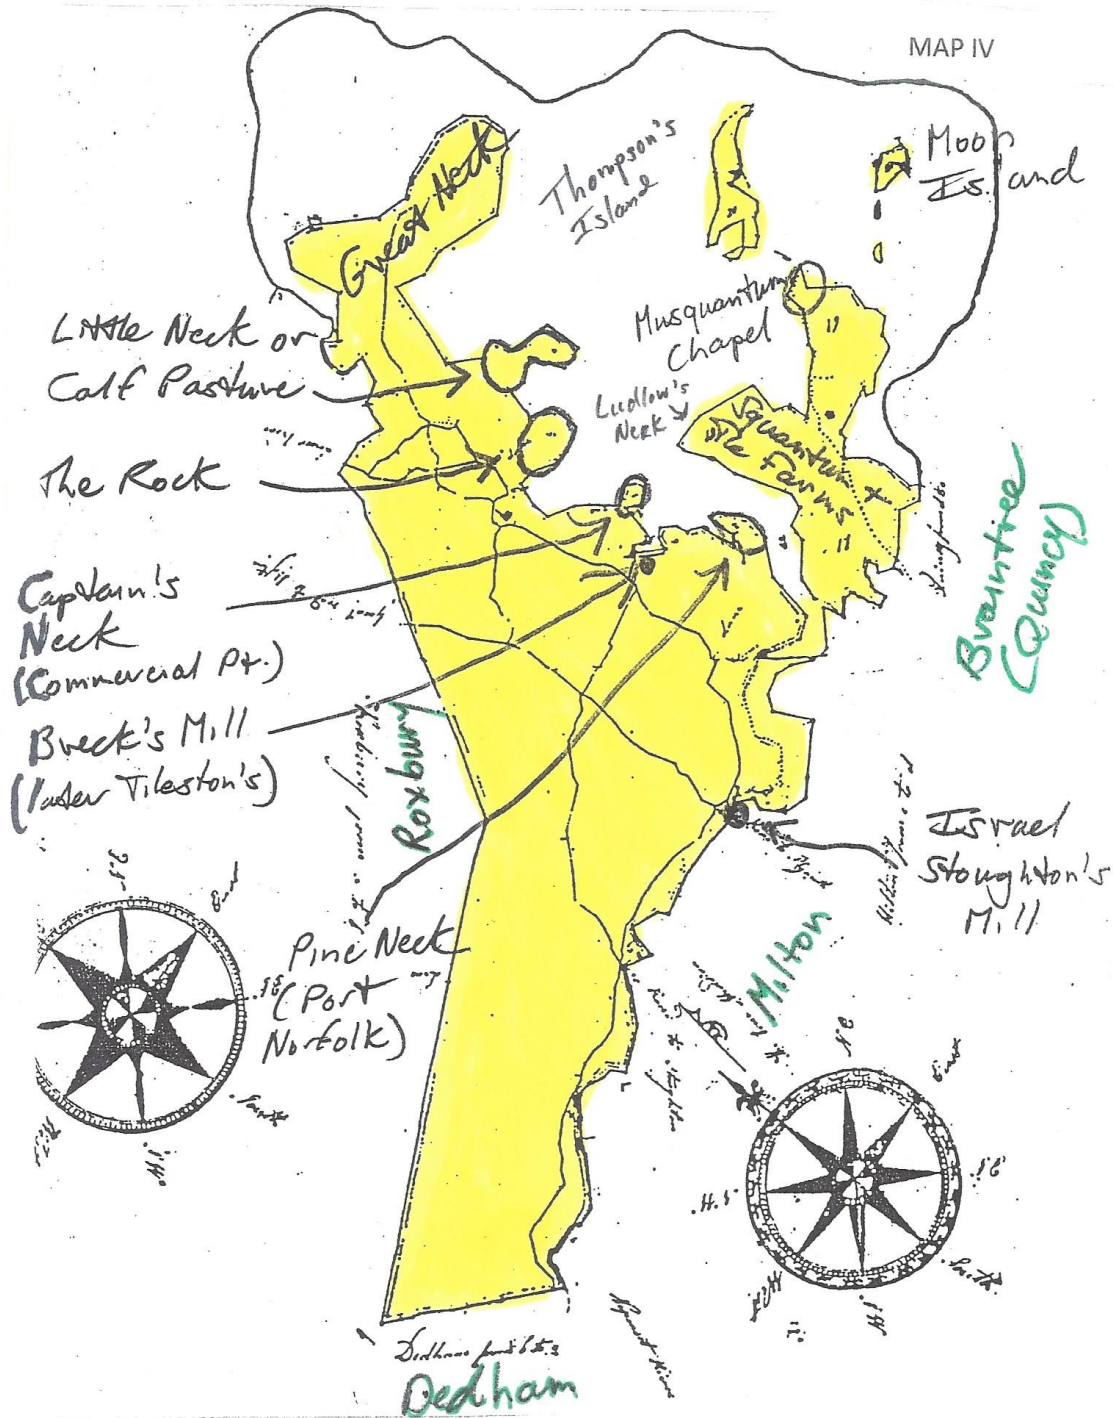 MAP IV
Great Neck
Thompson's
Island
Moon
Island
Musquantum
Chapel
Little Neck or
Calf Pasture
Ludlow's
Neck
Squantum
The Farms
The Rock
Braintree
(Quincy)
Captain's
Neck
(Commercial Pt.)
Breck's Mill
(later Tileston's)
Roxbury
Israel
Stoughton's
Mill
Pine Neck
(Port
Norfolk)
Milton
South
Dedham